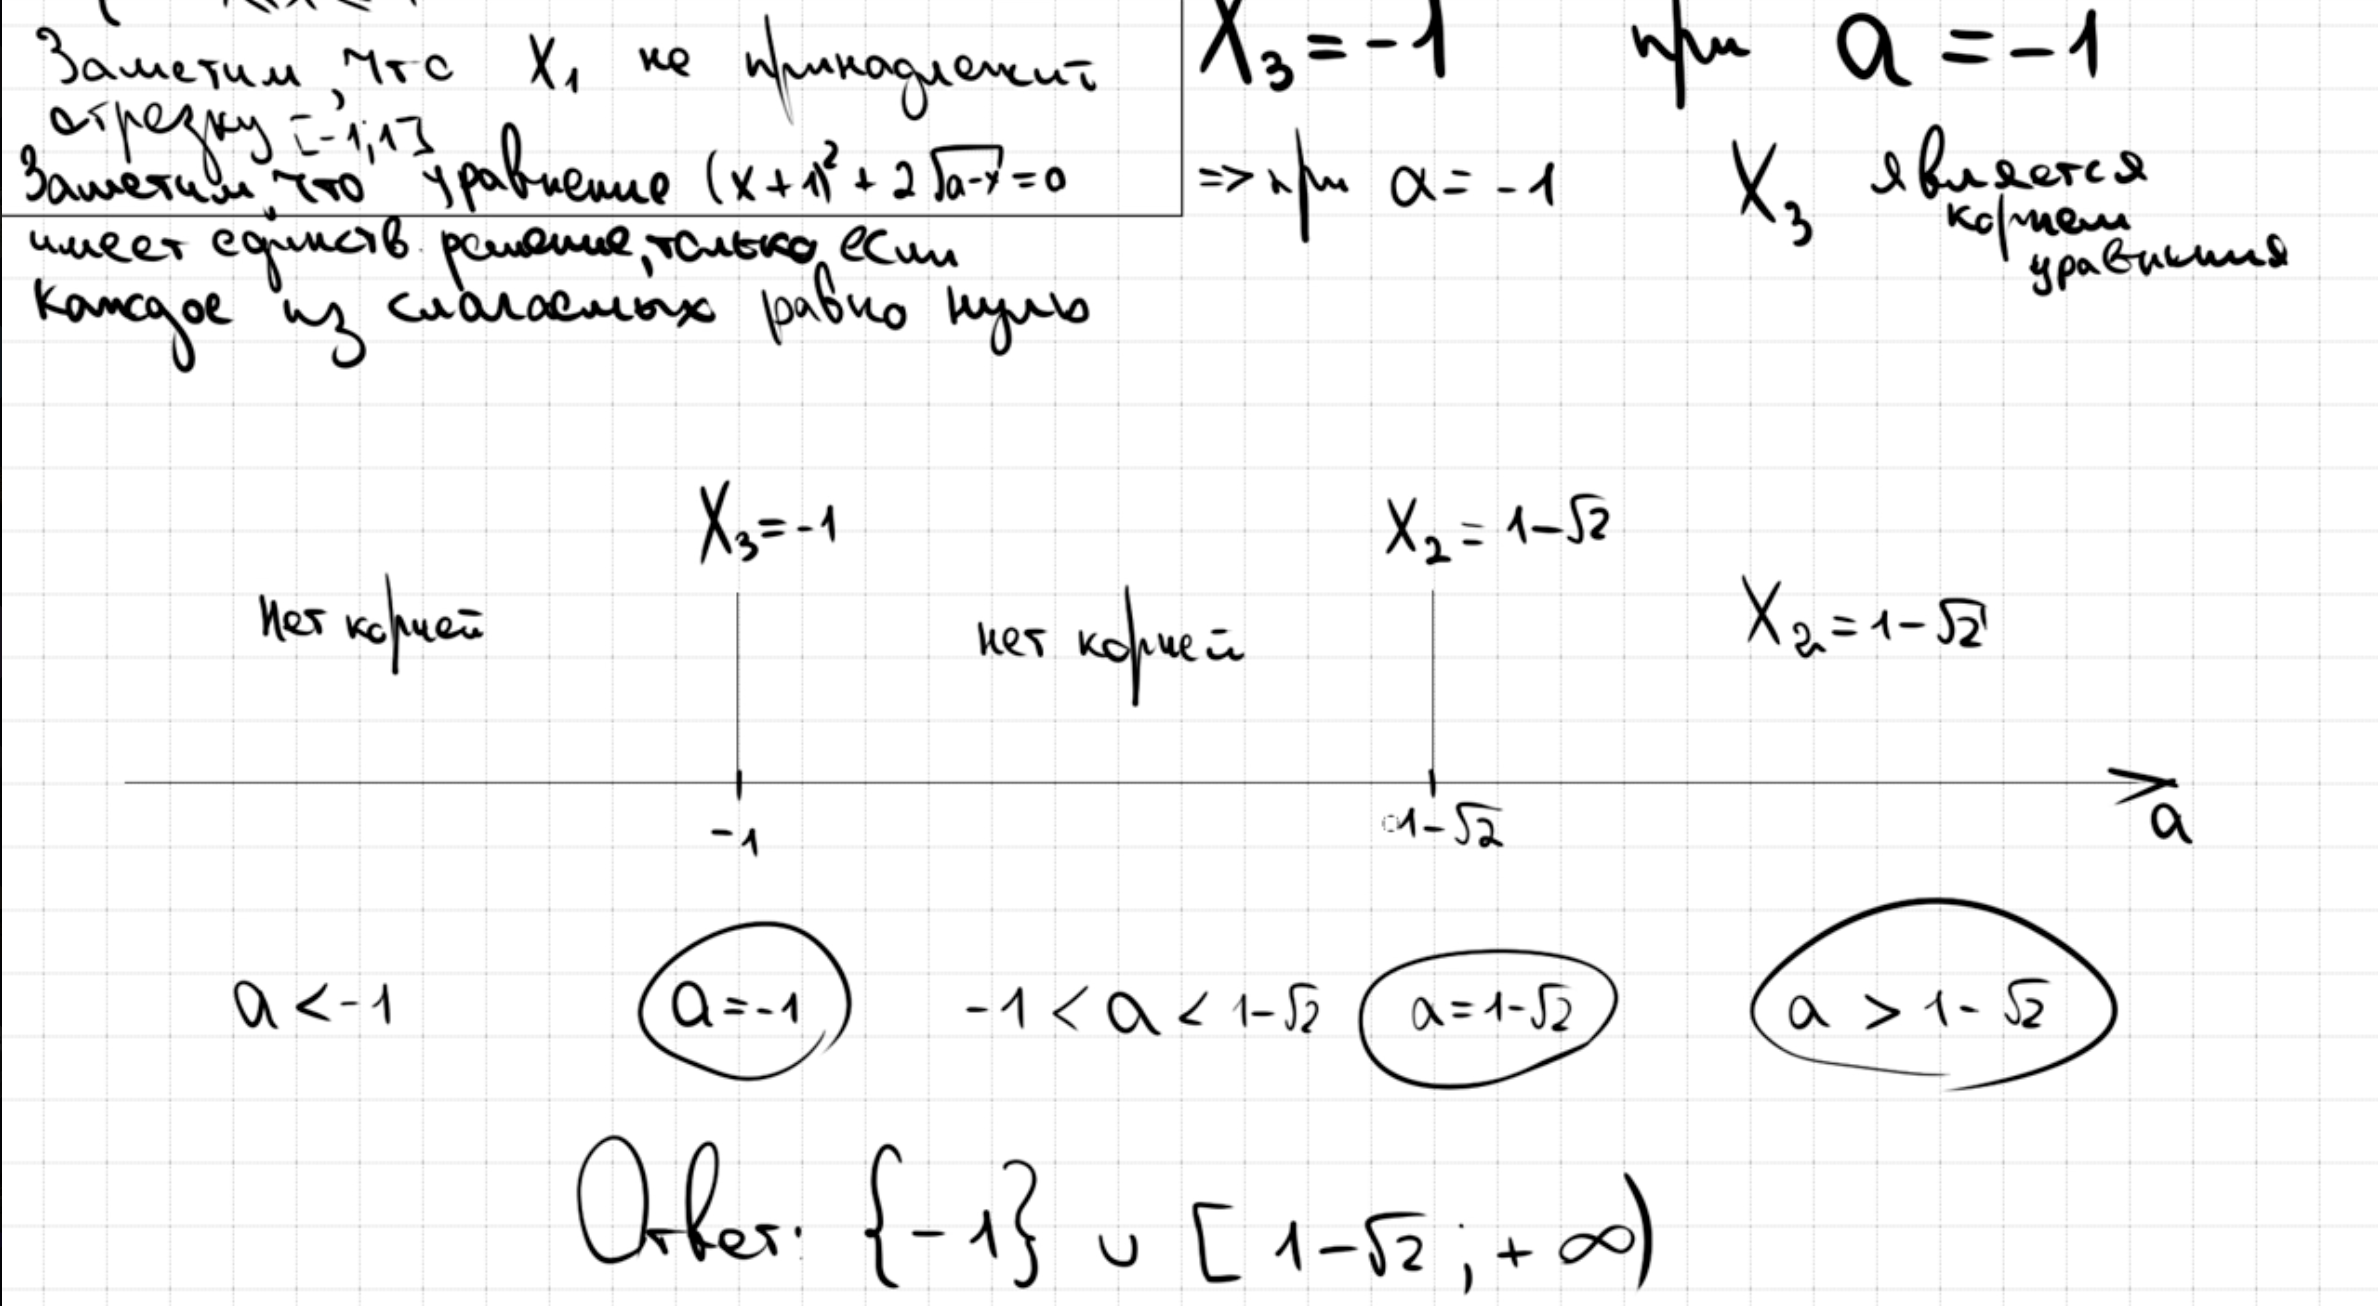 Заметим, что x₁ не принадлежит
отрезку [-1;1]
Заметим, что уравнение (x+1)² + 2√a-x = 0
имеет единств. решение, только если
каждое из слагаемых равно нулю
x₃ = -1 при a = -1
=> при a = -1 x₃ является
корнем
уравнения
x₃ = -1 x₂ = 1-√2
Нет корней нет корней x₂ = 1-√2
-1 1-√2 a
a < -1 a = -1 -1 < a < 1-√2 a = 1-√2 a > 1-√2
Ответ: {-1} ∪ [1-√2; +∞)